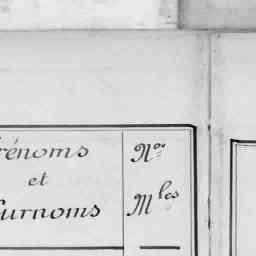 rénoms
et
urnoms
Nos
Mles